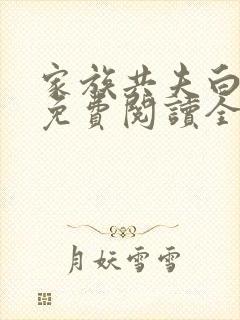 家族共夫白
免費閱讀全
月妖雪雪